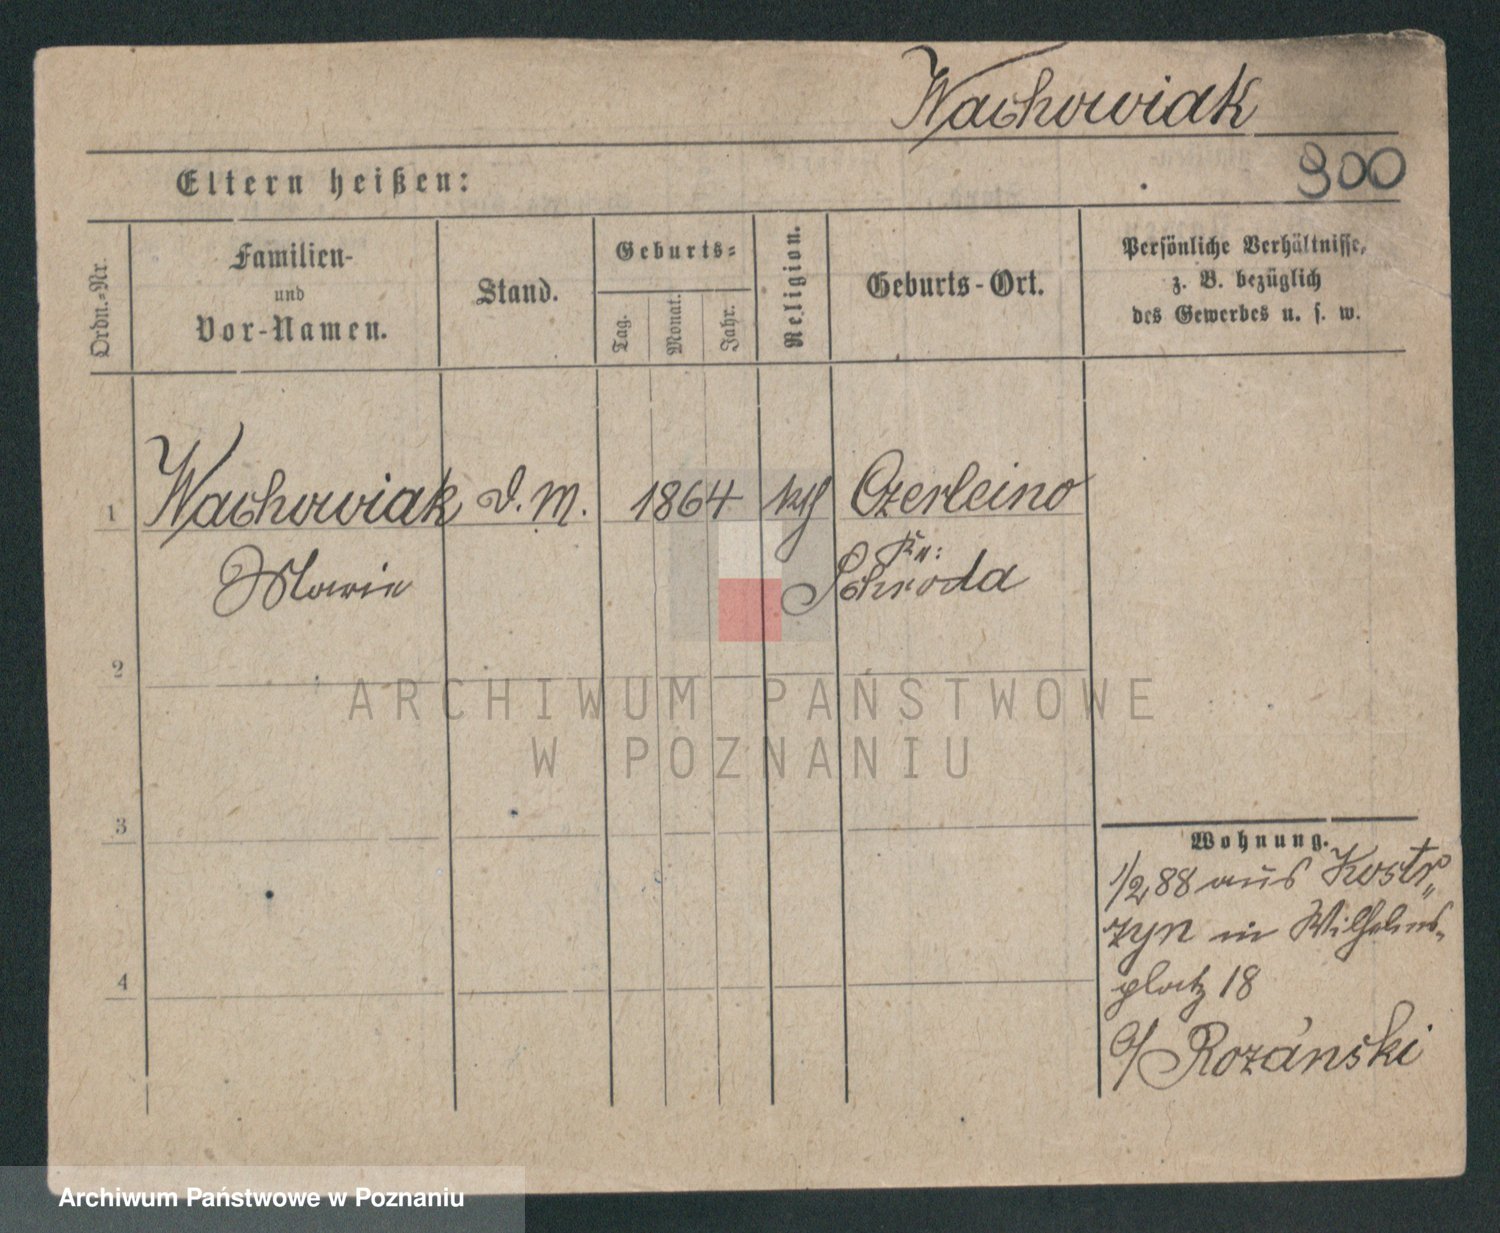 Wachowiak
900
Eltern heißen:
Ordn.-Nr.
Familien-
und
Vor-Namen.
Stand.
Geburts-
Tag.
Monat.
Jahr.
Religion.
Geburts-Ort.
Persönliche Verhältnisse,
z. B. bezüglich
des Gewerbes u. s. w.
1 Wachowiak D. M. 1864 kth Czerleino
Kr:
Marie Schroda
2
ARCHIWUM PAŃSTWOWE
W POZNANIU
3
Wohnung.
1/2 88 aus Kostr
zyn in Wilhelms-
platz 18
4
b/ Rozánski
Archiwum Państwowe w Poznaniu